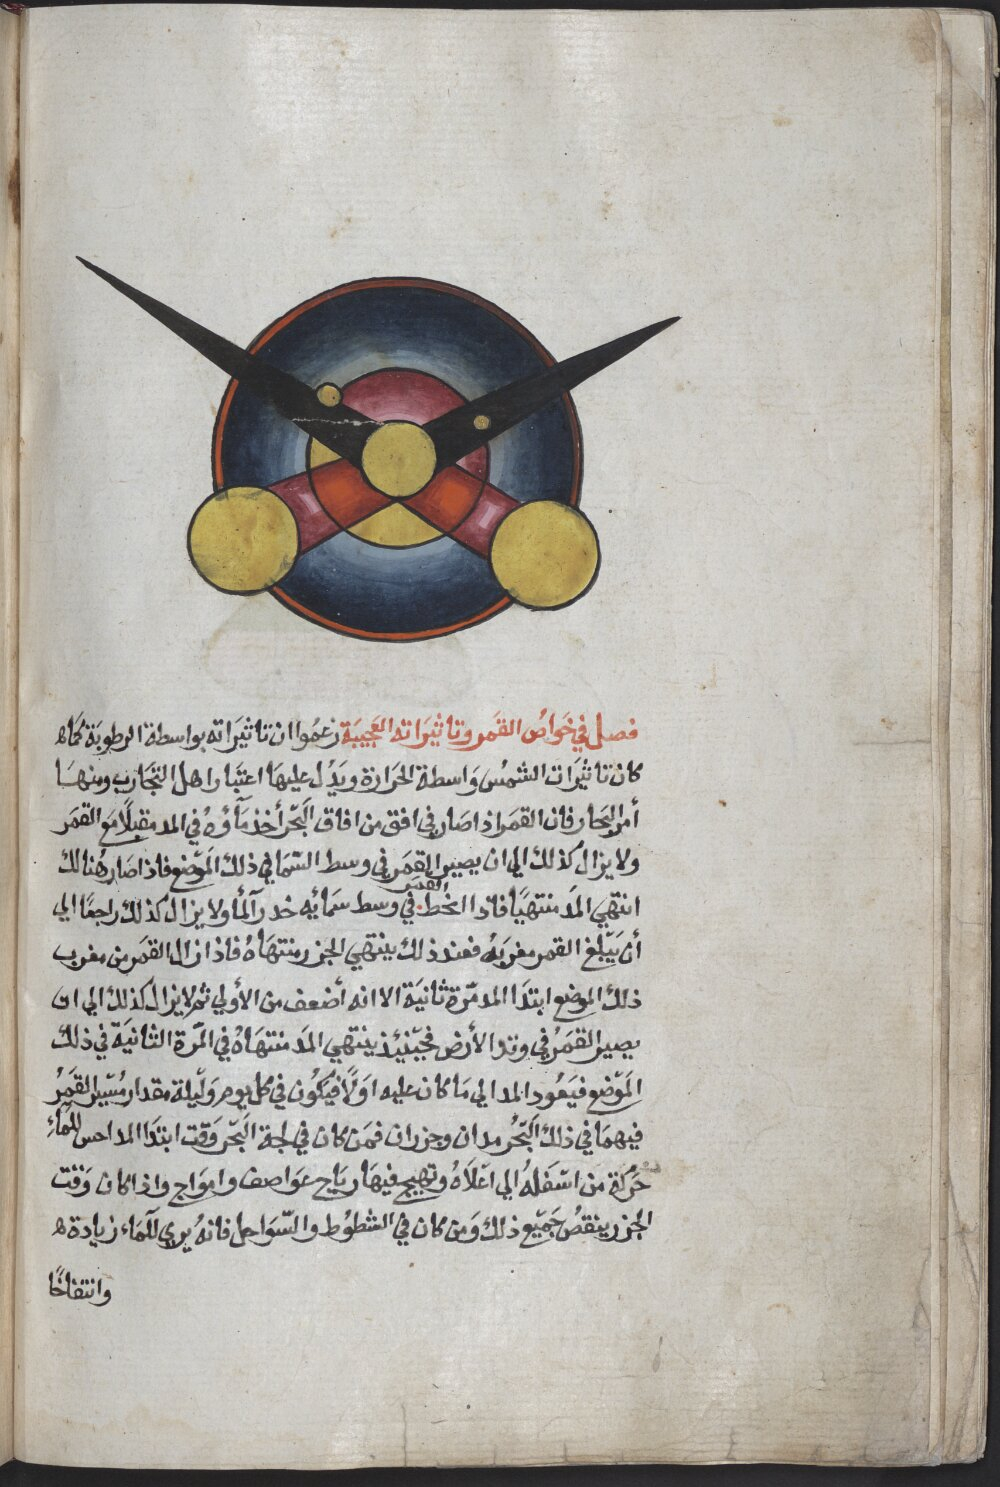 فصل في خَواصُ القمَر وتاثيَراته العَجيبَة زعمُوا ان تاثيَراته بواسطة الرطوبَة كمَا ه
كان تاثيَرات الشمسُ وَاسطة الحَرارة ويَدُل عليهَا اعتبَار اهل التجَارب ومنهَا
أمر البحَار فان القمَر اذا صَار في افق من افاق البَحَر أخذ مَآؤهُ في المد مقبلًا مَع القمَر
ولا يزال كذلك الي ان يصيرَ القمَر في وسط السَّمَا في ذلك المَوَضع فاذا صَار هُنالك
انتهي المَد منتهيًا فاذا انحُط القمَر في وسط سمَائه خدر آلمَا ولا يزال كذلك راجعًا الي
أن يَبَلغ القمر مغربَهُ فعند ذلك ينتهي الجزر منتهَاهُ فاذا زال القمَر من مغرب
ذلك الموضع ابتدَا المد مَرّة ثانيَة الا انه أضعف من الأولي ثم لا يزال كذلك الي ان
يصير القمَرُ في وتد الأرض فحَيَنئذ ينتهي المَد منتهَاهُ في المَرّة الثانيَة في ذلك
المَوَضع فيَعُود المد الي مَا كان عليه اوَلًا فيَكُون في كل يوم وَلَيلة مقدار مُسَيَر القمَرُ
فيهمَا في ذلك البَحَرُ مدان وجزران فمَن كان في لجة البَحَر وَقت ابتدَا المد احس للمَاءِ
حَرَكة من اسَفلهُ الي اعَلاهُ وتهيج فيهَا ريَاح عوَاصف وامواج واذا كان وَقت
الجزر ينقصُ جَميَع ذلك وَمن كان في الشطوُط والسّوَاحل فانهُ يري للمَاء زيادة ه
وانتفاخًا